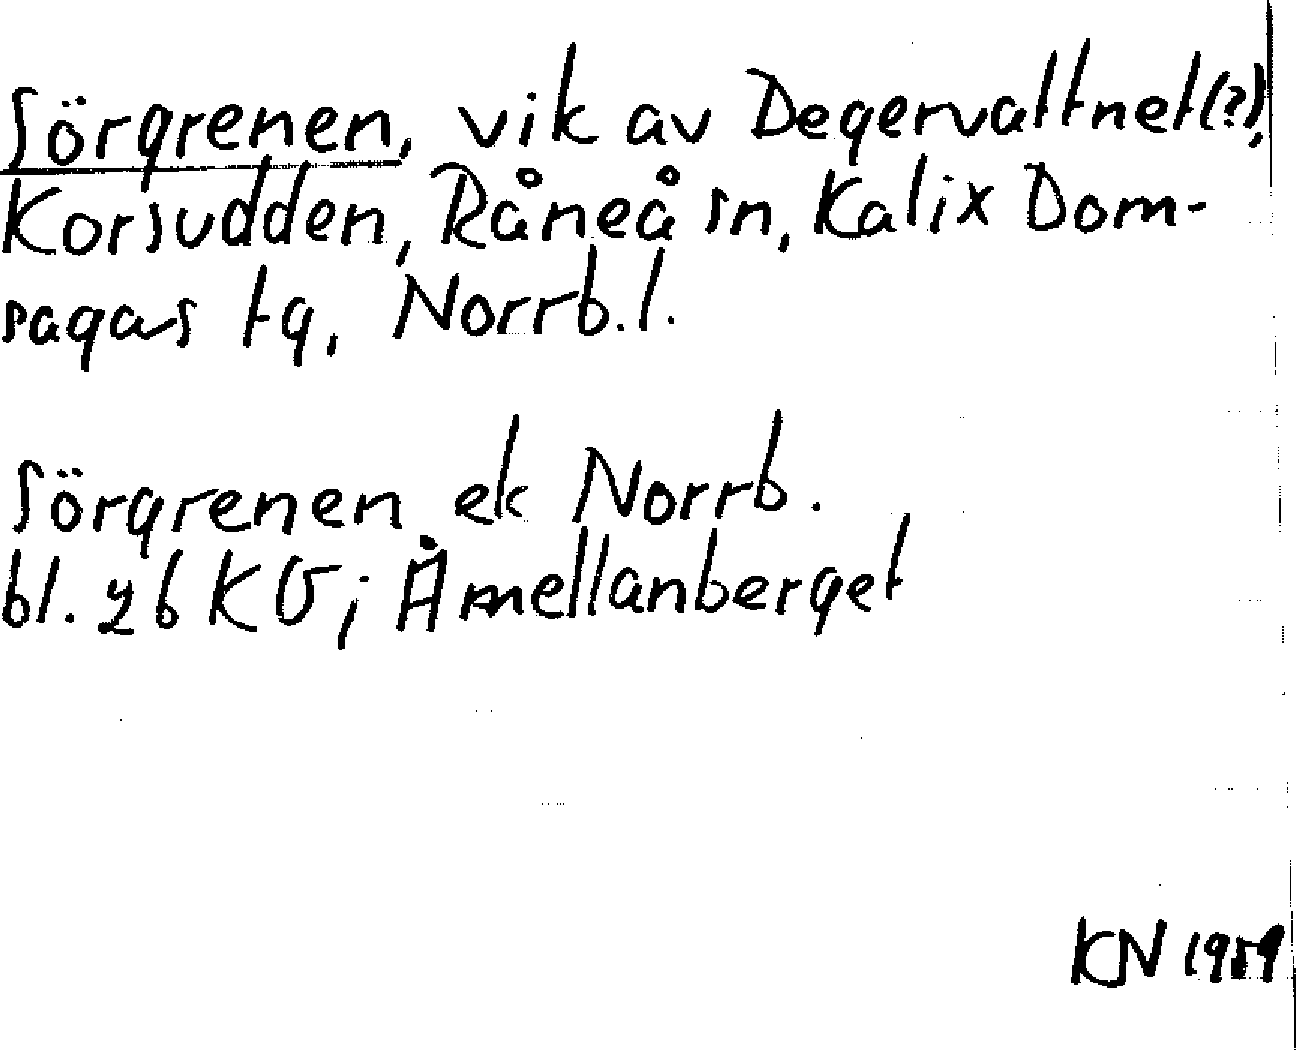 Sörgrenen, vik av Degervattnet(?),
Korsudden, Råneå sn, Kalix Dom-
sagas tg, Norrb.l.
Sörgrenen ek Norrb.
bl. 26 KV; Åmellanberget
KN 1959